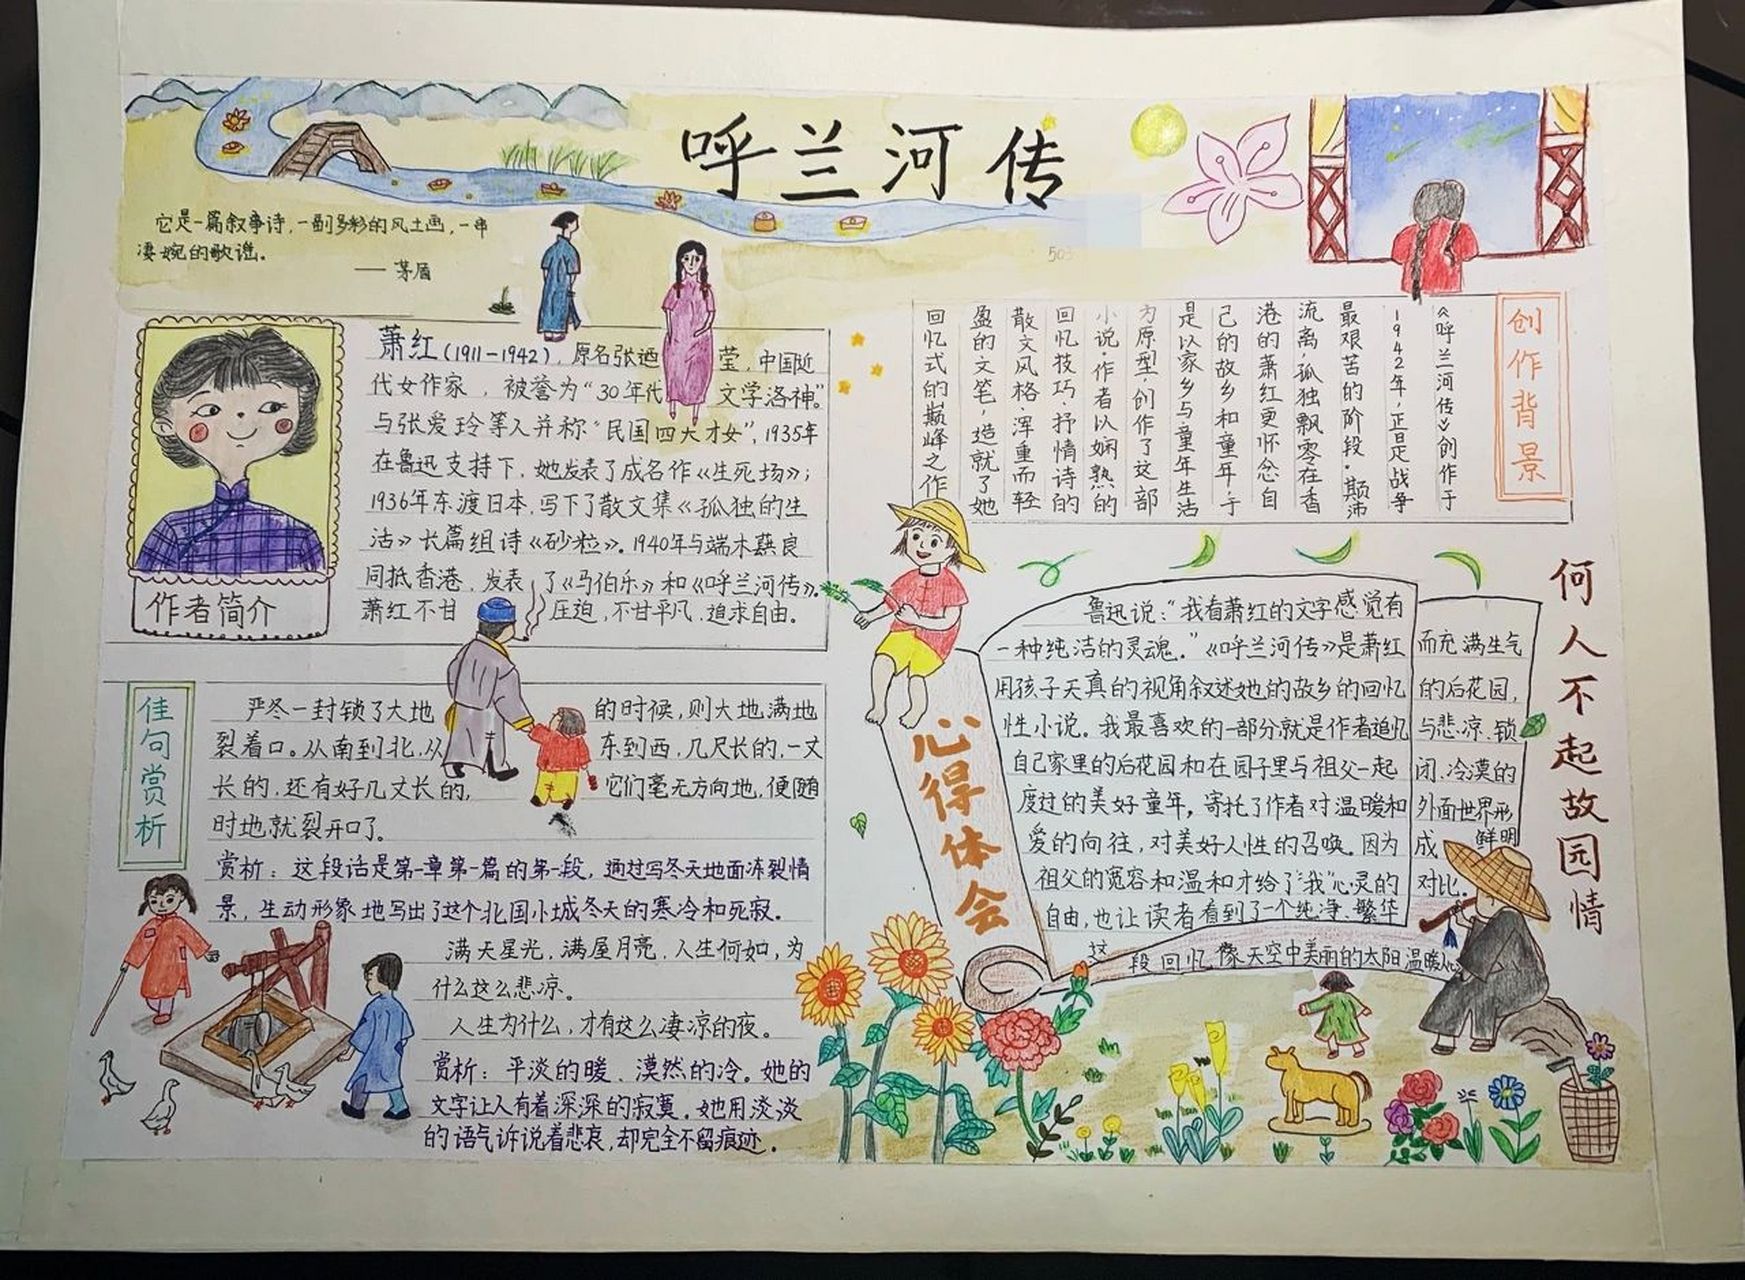 呼兰河传
它是一篇叙事诗，一副多彩的风土画，一串
凄婉的歌谣。
——茅盾
作者简介
萧红(1911-1942)，原名张迺莹，中国近
代女作家，被誉为“30年代文学洛神”。
与张爱玲等人并称“民国四大才女”，1935年
在鲁迅支持下，她发表了成名作《生死场》；
1936年东渡日本，写下了散文集《孤独的生
活》长篇组诗《砂粒》。1940年与端木蕻良
同抵香港，发表了《马伯乐》和《呼兰河传》。
萧红不甘压迫，不甘平凡，追求自由。
创作背景
《呼兰河传》创作于
1942年，正是战争
最艰苦的阶段，颠沛
流离，孤独飘零在香
港的萧红更怀念自
己的故乡和童年，于
是以家乡与童年生活
为原型，创作了这部
小说，作者以娴熟的
回忆技巧，抒情诗的
散文风格，浑重而轻
盈的文笔，造就了她
回忆式的巅峰之作
佳句赏析
严冬一封锁了大地的时候，则大地满地
裂着口。从南到北，从东到西，几尺长的，一丈
长的，还有好几丈长的，它们毫无方向地，便随
时地就裂开口了。
赏析：这段话是第一章第一篇的第一段，通过写冬天地面冻裂情
景，生动形象地写出了这个北国小城冬天的寒冷和死寂。
满天星光，满屋月亮，人生何如，为
什么这么悲凉。
人生为什么，才有这么凄凉的夜。
赏析：平淡的暖、漠然的冷。她的
文字让人有着深深的寂寞，她用淡淡
的语气诉说着悲哀，却完全不留痕迹。
心得体会
鲁迅说：“我看萧红的文字感觉有
一种纯洁的灵魂。”《呼兰河传》是萧红
用孩子天真的视角叙述她的故乡的回忆
性小说。我最喜欢的一部分就是作者追忆
自己家里的后花园和在园子里与祖父一起
度过的美好童年，寄托了作者对温暖和
爱的向往，对美好人性的召唤。因为
祖父的宽容和温和才给了“我”心灵的
自由，也让读者看到了一个纯净、繁华
而充满生气
的后花园，
与悲凉、锁
闭、冷漠的
外面世界形
成鲜明
对比。
这段回忆像天空中美丽的太阳温暖人心
何人不起故园情